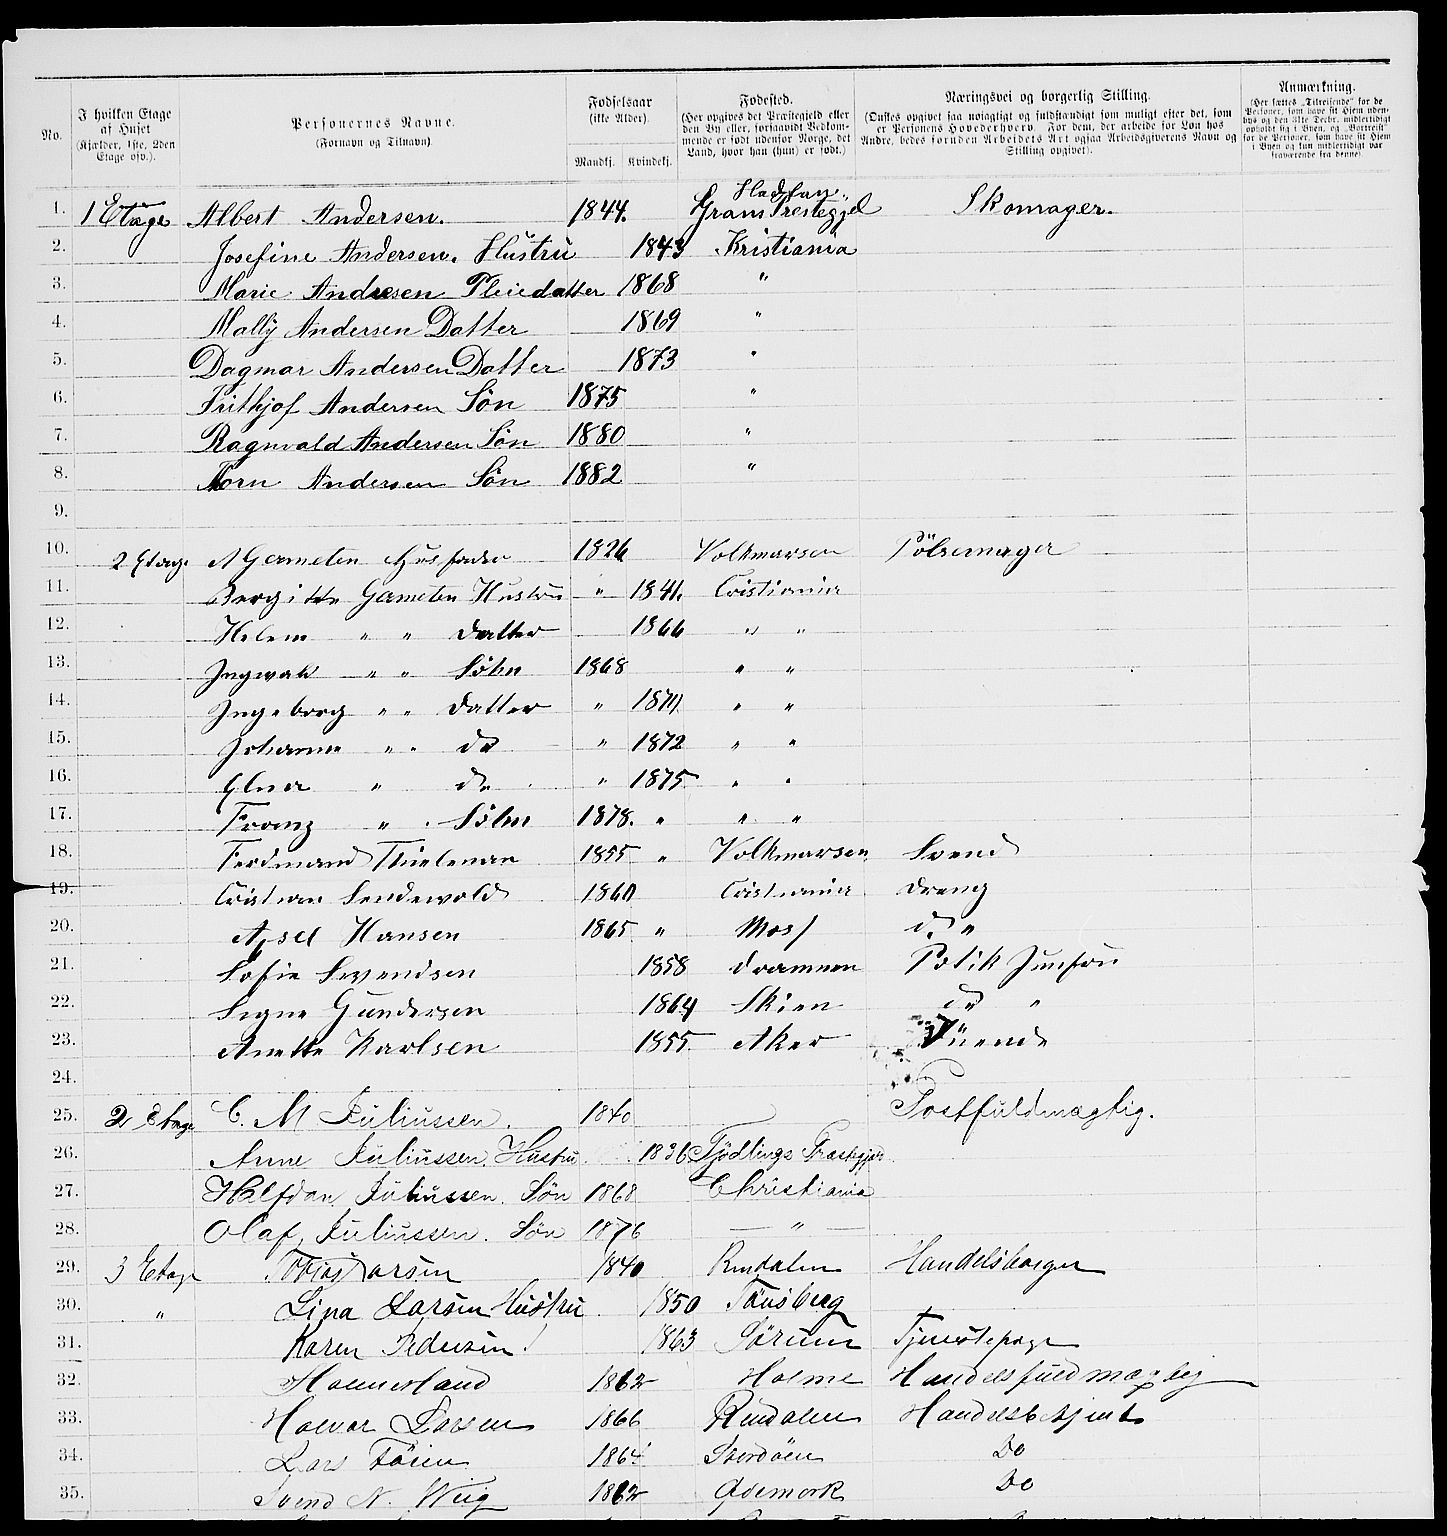 No.
I hvilken Etage af Huset (Kjælder, 1ste, 2den Etage osv.).
Personernes Navne. (Fornavn og Tilnavn)
Fødselsaar (ikke Alder). Mandkj. Kvindekj.
Fødested. (Her opgives det Præstegjeld eller den By eller, forsaavidt Vedkommende er født udenfor Norge, det Land, hvor han (hun) er født.)
Næringsvei og borgerlig Stilling. (Ønskes opgivet saa nøiagtigt og fuldstændigt som muligt efter det, som er Personens Hovederhverv. For dem, der arbeide for Løn hos Andre, bedes foruden Arbeidets Art ogsaa Arbeidsgiverens Navn og Stilling opgivet).
Anmærkning. (Her sættes „Tilreisende“ for de Personer, som have sit Hjem udenbys og den 31te Decbr. midlertidigt opholdt sig i Byen, og „Bortreist“ for de Personer, som have sit Hjem i Byen og kun midlertidigt var fraværende fra denne).
1. 1 Etage Albert Andersen. 1844. Grans Prestegjel Skomager.
2. Josefine Andersen. Hustru 1843 Kristiania
3. Marie Andresen Pleiedatter 1868 "
4. Mally Andersen Datter 1869 "
5. Dagmar Andersen Datter 1873 "
6. Frithjof Andersen Søn 1875 "
7. Ragnvald Andersen Søn 1880 "
8. Andersen Søn 1882 "
9.
10. 2 Etage A Germeten Husfader 1826 Volkmarsen Pölsemager
11. Bergitte Germeten Hustru " 1841. Cristiania
12. Helene " " Datter 1866 " "
13. Ingwald " " Söhn 1868 " "
14. Ingeborg " " Datter " 1871 " "
15. Johanne " " do " 1872 " "
16. " do " 1875 " "
17. Franz " " Söhn 1878. " " "
18. Ferdinand Thieleman 1855 " Volkmarsen Svend
19. Cristian Sendewold 1860 Cristiania Dreng
20. Axsel Hansen 1865 " Moss do "
21. Sofie Swendsen 1858 Drammen Butik Jumfru
22. Signe Gundersen 1864 Skien do "
23. Anette Karlsen 1855 Aker Tiienede
24.
25. 2 Etage C. M Juliussen. 1840 Postfuldmægtig.
26. Anne Juliussen. Hustru 1836 Tjødlings Præstegjeld
27. Halfdan Juliussen. Søn 1868 Christiania
28. Olaf Juliussen. Søn 1876 — " —
29. 3 Etage Tobias Larsen 1840 Rendalen Handelsborger
30. " Lina Larsen Hustru 1850 Tönsberg
31. Karen Pedersen 1863 Sörum Tjenestepige
32. 1862 Holme Handelsfuldmægtig
33. Halvor Larsen 1866 Rendalen Handelsbetjent
34. Lars Föien 1864 Stordöen Do
35. Svend N. Wiig 1862 Ødemark Do